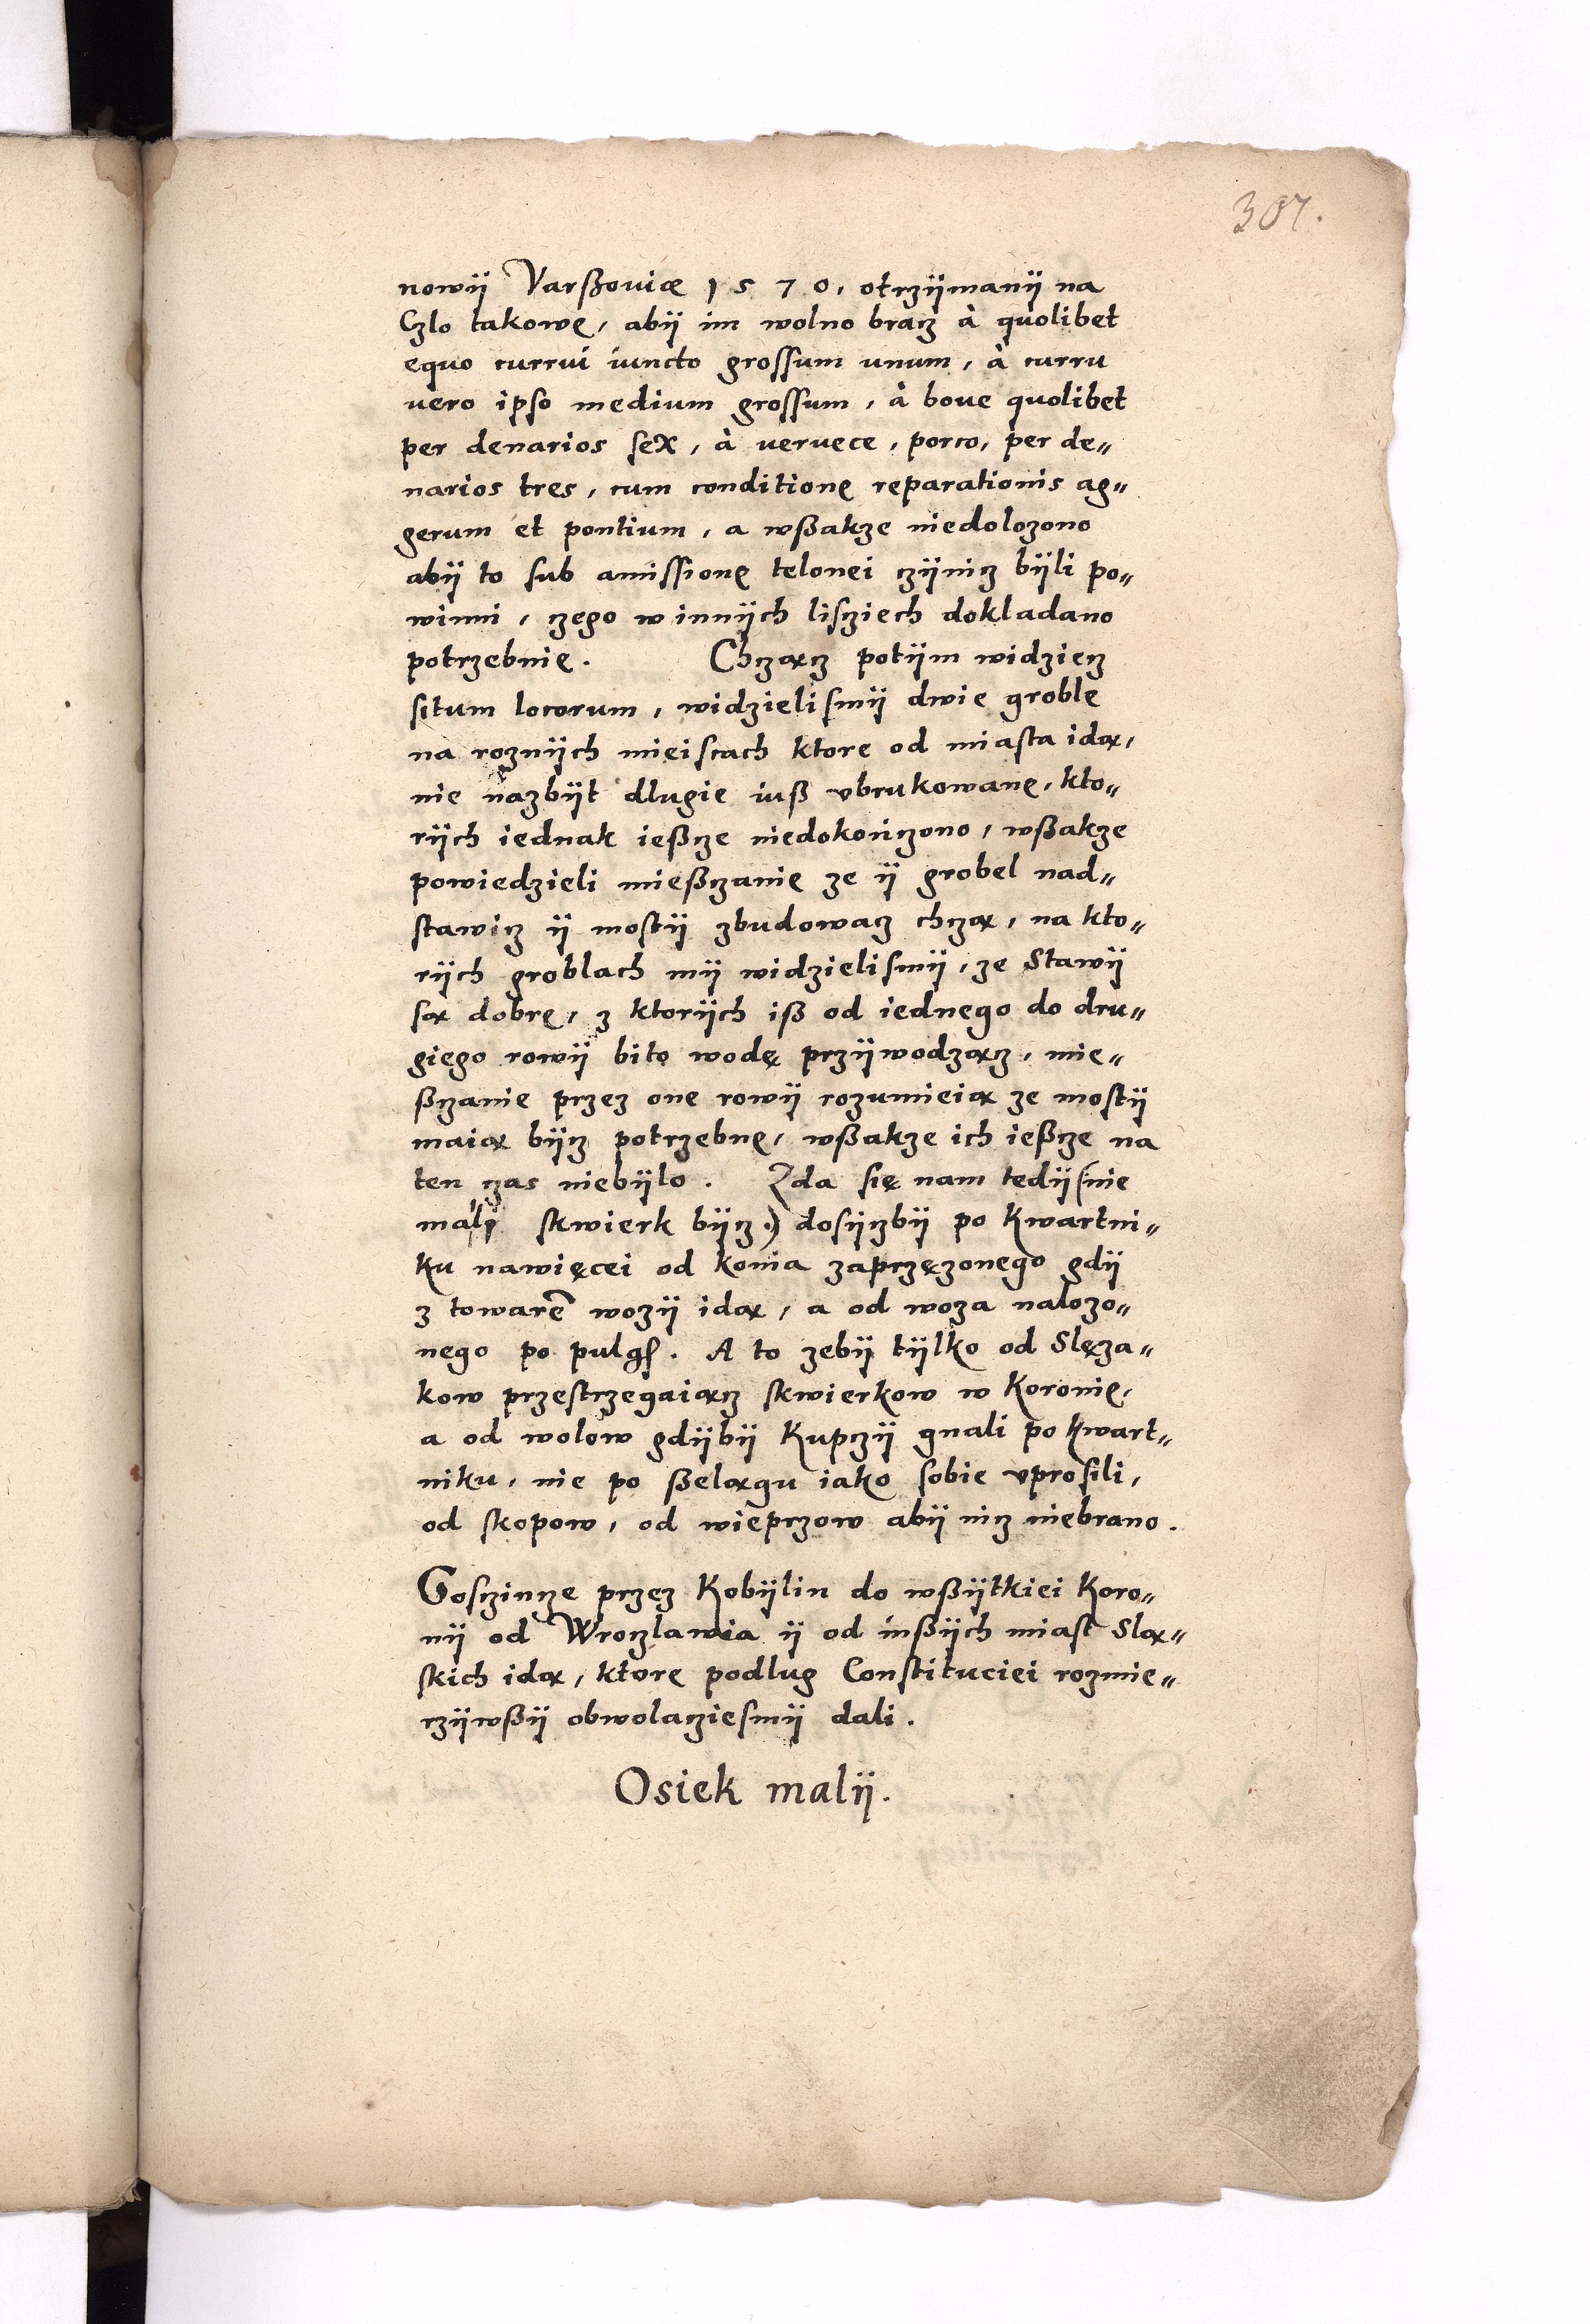 307.
nowÿ Varßoviæ 1570, otrzÿmanÿ na
Czlo takowę, abÿ im wolno bracz à quolibet
equo currui iuncto grossum unum, à curru
vero ipso medium grossum, à boue quolibet
per denarios sex, à vervece, porco, per de„
narios tres, cum conditionę reparationis ag„
gerum et pontium, a wßakze niedolozono
abÿ to sub amissionę telonei czÿnicz bÿli po„
winni, czego w innÿch lisciech dokladano
potrzebnię. Chczącz potÿm widziecz
situm locorum, widzielismÿ dwie groblę
na roznÿch mieiscach ktore od miasta idą,
nie nazbÿt dlugie iuß vbrukowanę, kto„
rÿch iednak ießcze niedokończono, wßakze
powiedzieli mießczanię ze ÿ grobel nad„
stawicz ÿ mostÿ zbudowacz chczą, na kto„
rÿch groblach mÿ widzielismÿ, ze Stawÿ
są dobrę, z ktorÿch iß od iednego do dru„
giego rowÿ bito wodę przÿwodzącz, mie„
ßczanie przez one rowÿ rozumieią ze mostÿ
maią bÿcz potrzebnę, wßakze ich ießcze na
ten czas niebÿlo. Zda się nam tedÿ (nie
mali skwierk bÿcz) dosÿczbÿ po Kwartni„
ku nawięcei od konia zaprzęzonego gdÿ
z towarē wozÿ idą, a od woza nalozo„
nego po pulgſ. A to zebÿ tÿlko od Slęza„
kow przestrzegaiącz skwierkow w Koronię,
a od wolow gdÿbÿ Kupczÿ gnali po Kwart„
niku, nie po ßelągu iako sobie vprosili,
od skopow, od wieprzow abÿ nicz niebrano.
Goscincze przez Kobÿlin do wßÿtkiei Koro„
nÿ od Wroczlawia ÿ od inßÿch miast Slą„
skich idą, ktorę podlug Constituciei rozmie„
rzÿwßÿ obwolacziesmÿ dali.
Osiek malÿ.